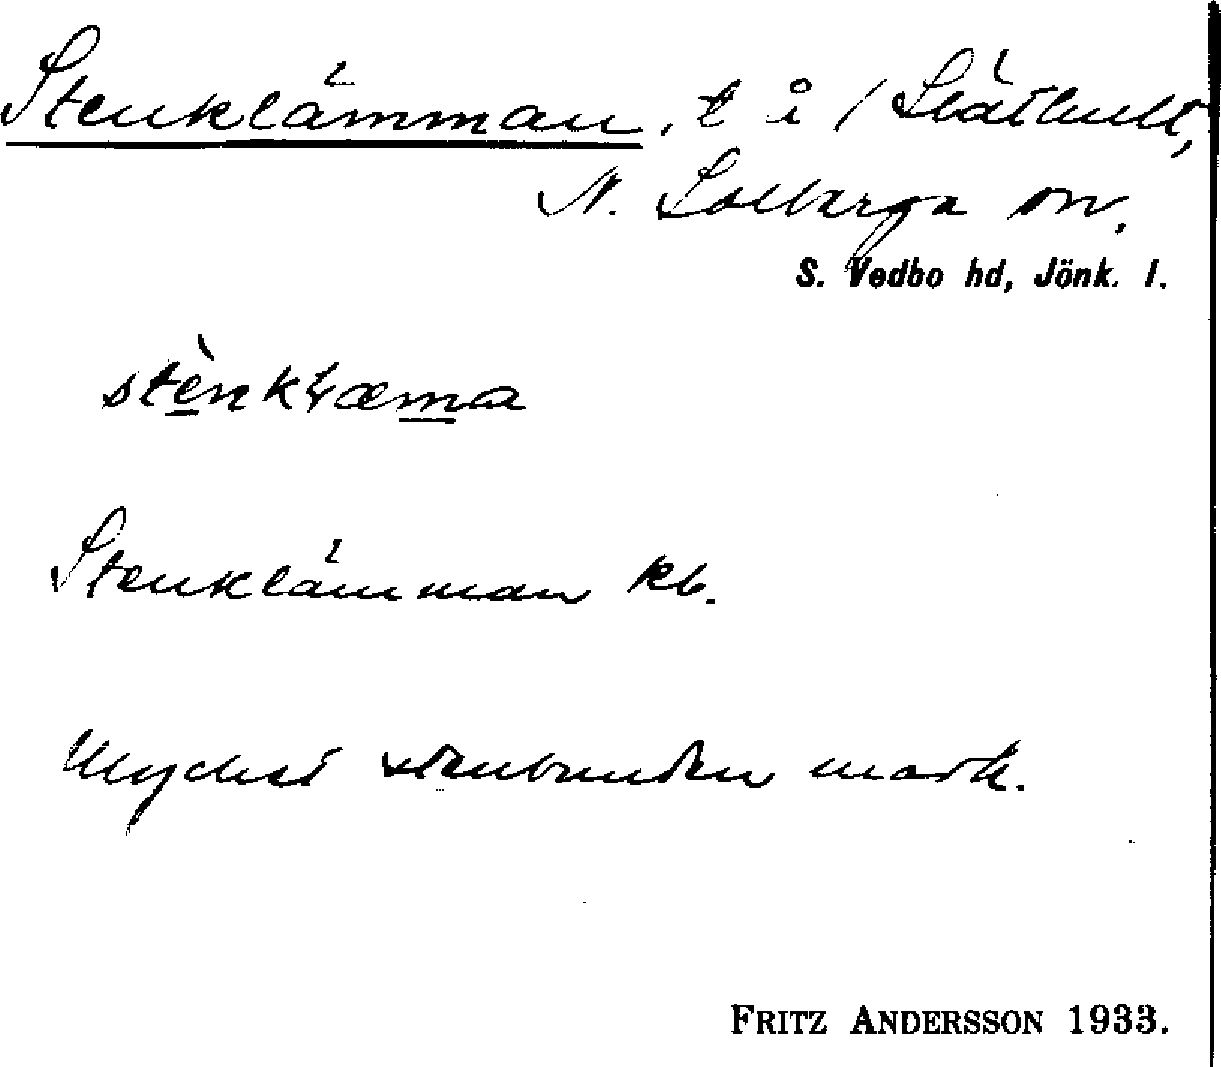 Stenklämman, t i / Släthult,
N. Solberga sn,
S. Vedbo hd, Jönk. l.
stènkłæma
Stenklämman kb.
Mycket stenbunden mark.
FRITZ ANDERSSON 1933.